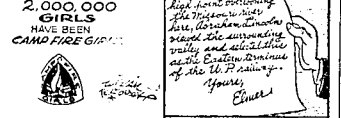 2,000,000
GIRLS
HAVE BEEN
CAMP FIRE GIRLS
CAMP FIRE
GIRLS
high point overlooking
the Missouri river
here, Abraham Lincoln
viewed the surrounding
valley and selected this
as the Eastern terminus
of the U.P. railway.
Yours,
Elmer